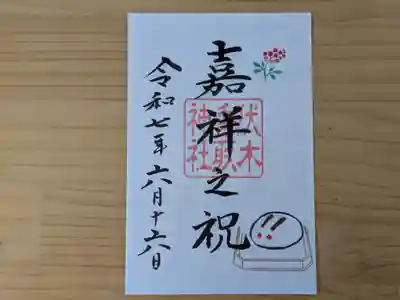 嘉祥之祝
伏木
香取
神社
令和七年六月十六日